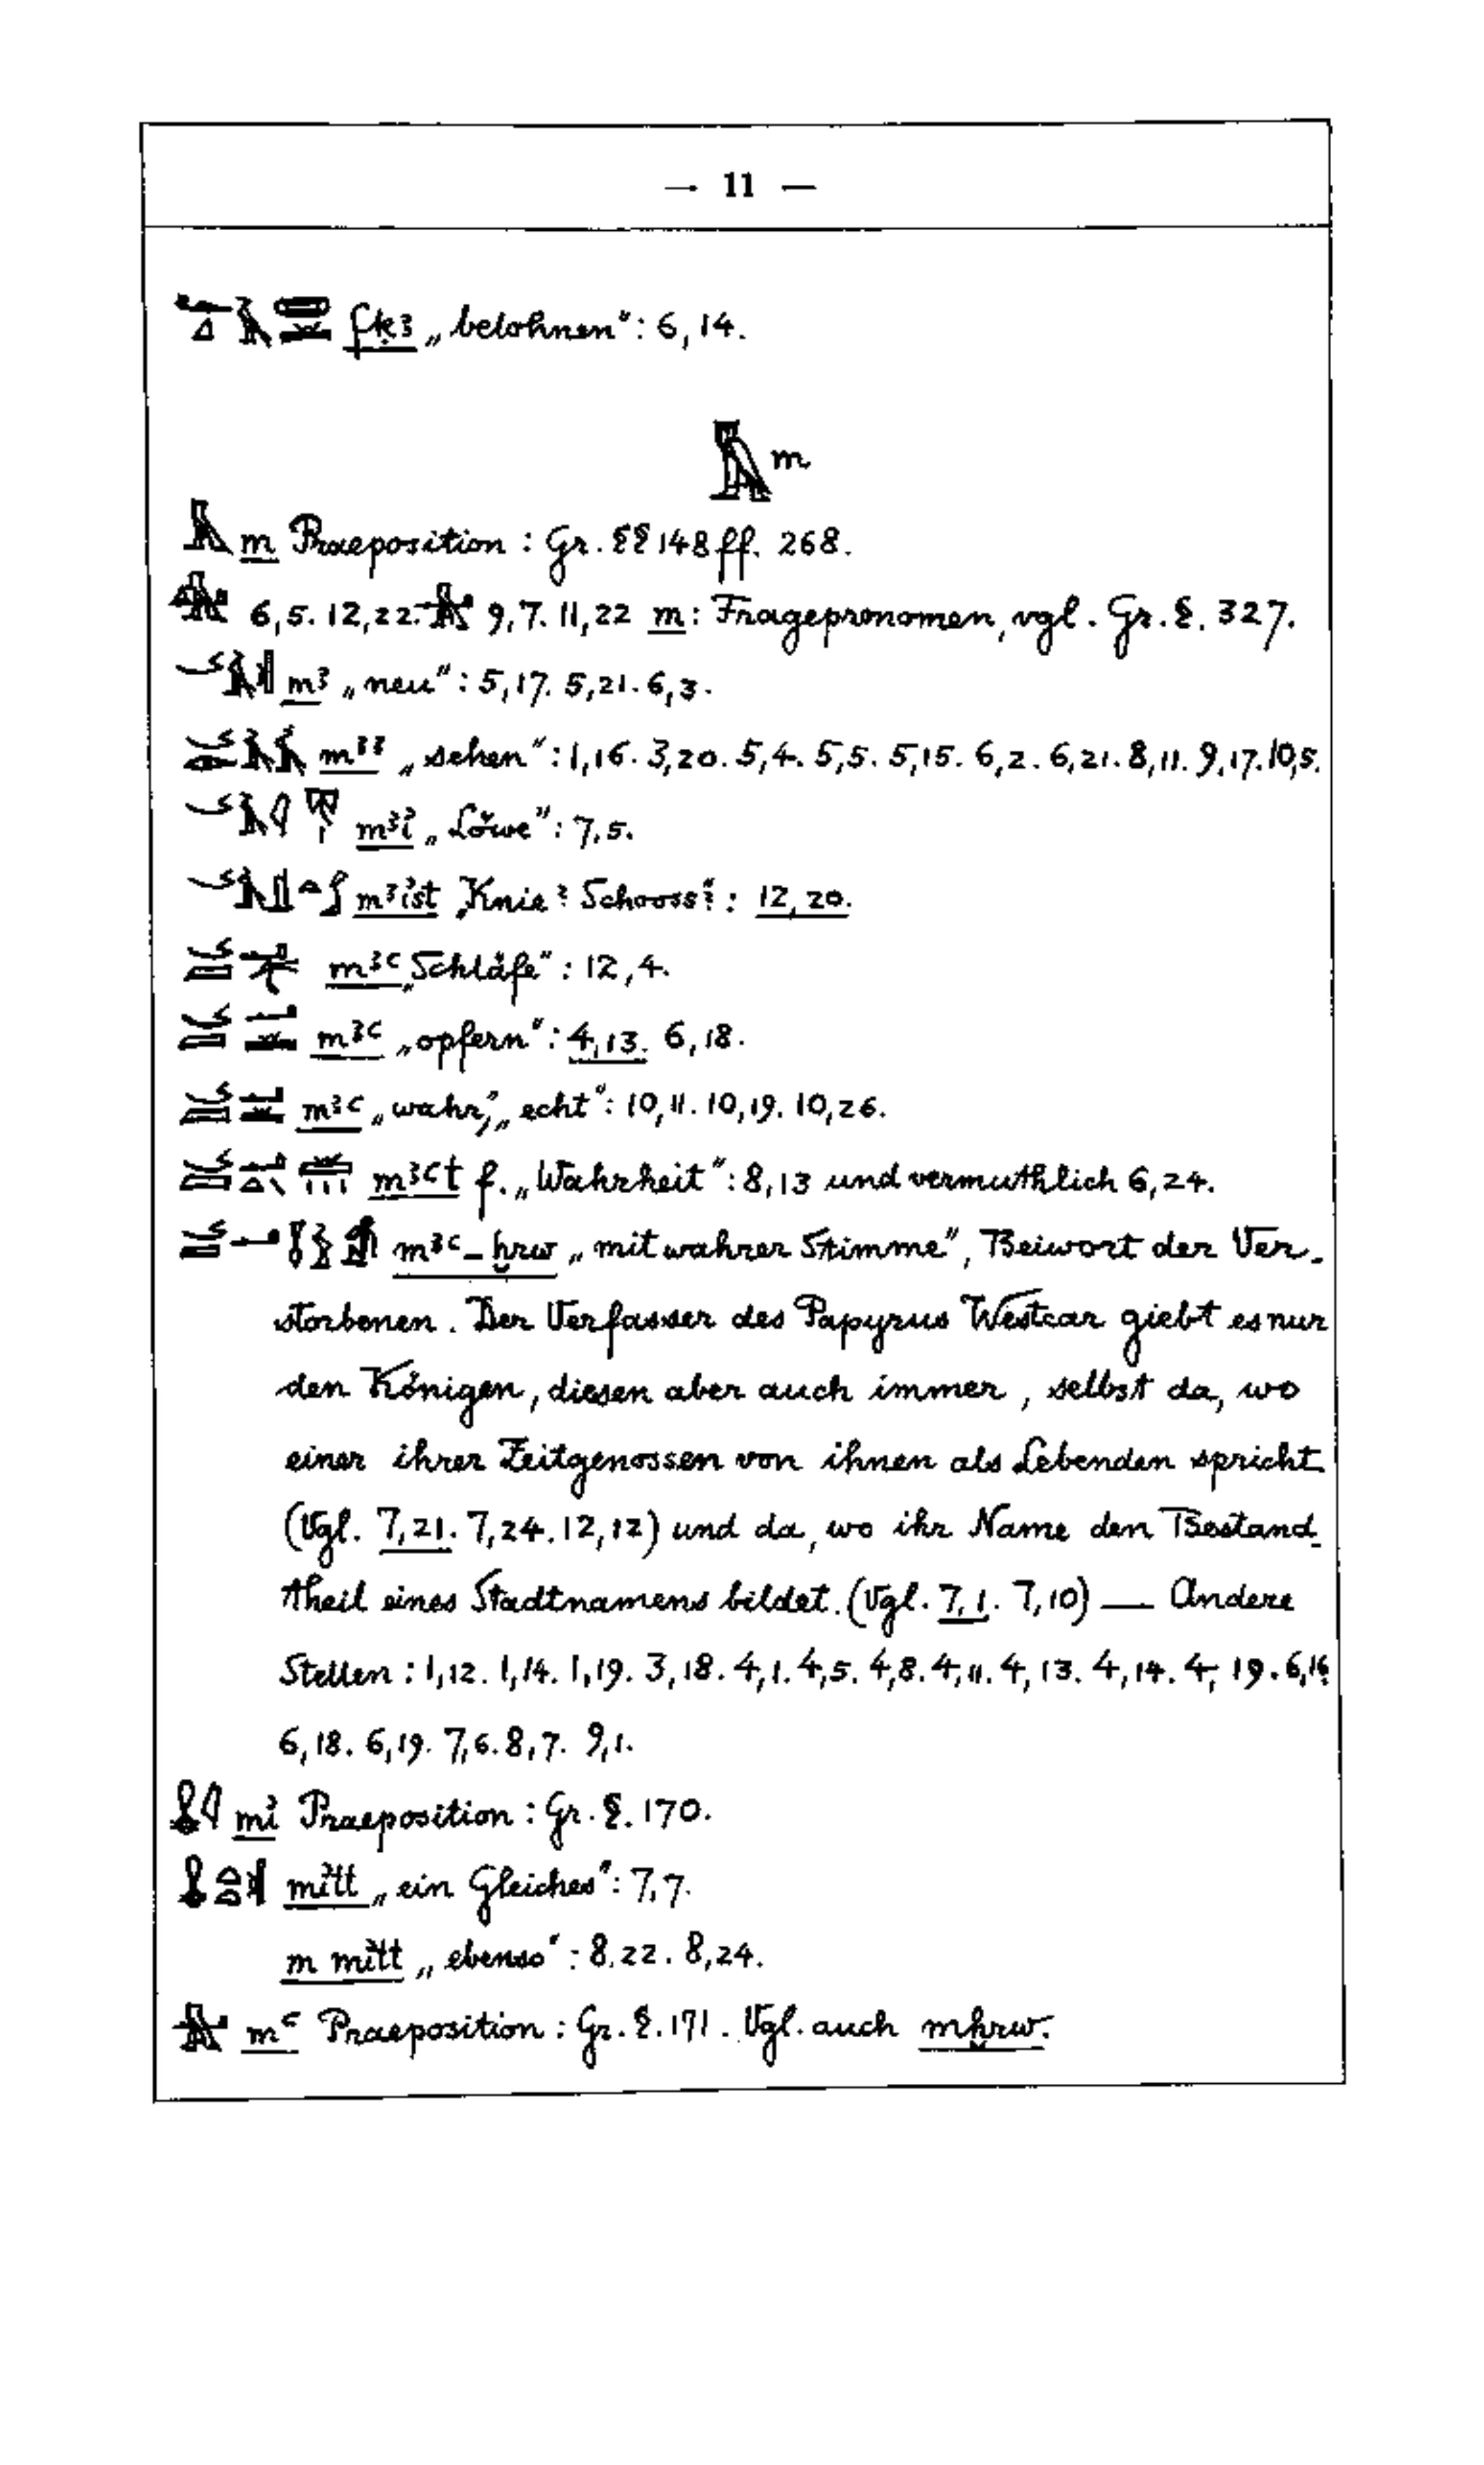 — 11 —
fḳꜣ „belohnen“: 6, 14.
m
m Praeposition: Gr. §§ 148 ff. 268.
6,5. 12,22. 9,7. 11,22 m: Fragepronomen, vgl. Gr. §. 327.
mꜣ „neu“: 5,17. 5,21. 6,3.
mꜣꜣ „sehen“: 1,16. 3,20. 5,4. 5,5. 5,15. 6,2. 6,21. 8,11. 9,17. 10,5.
mꜣἰ „Löwe“: 7,5.
mꜣἰst „Knie? Schooss“?: 12,20.
mꜣꜥ „Schläfe“: 12,4.
mꜣꜥ „opfern“: 4,13. 6,18.
mꜣꜥ „wahr“, „echt“: 10,11. 10,19. 10,26.
mꜣꜥt f. „Wahrheit“: 8,13 und vermuthlich 6,24.
mꜣꜥ-ḫrw „mit wahrer Stimme“, Beiwort der Ver-
storbenen. Der Verfasser des Papyrus Westcar giebt es nur
den Königen, diesen aber auch immer, selbst da, wo
einer ihrer Zeitgenossen von ihnen als Lebenden spricht
(Vgl. 7,21. 7,24. 12,12) und da, wo ihr Name den Bestand-
theil eines Stadtnamens bildet. (Vgl. 7,1. 7,10) — Andere
Stellen: 1,12. 1,14. 1,19. 3,18. 4,1. 4,5. 4,8. 4,11. 4,13. 4,14. 4,19. 6,16
6,18. 6,19. 7,6. 8,7. 9,1.
mἰ Praeposition: Gr. §. 170.
mἰtt „ein Gleiches“: 7,7.
m mἰtt „ebenso“: 8.22. 8,24.
mꜥ Praeposition: Gr. §. 171. Vgl. auch mḫrw.